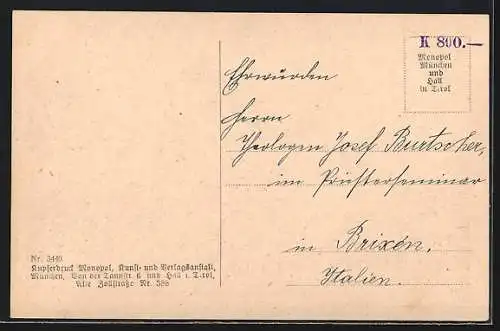 K 800.—
Monopol
München
und
Hall
in Tirol
Ehrwürden
Herrn
Theologen Josef Burtscher,
im Priesterseminar
in Brixen.
Italien.
Nr. 3440
Kupferdruck Monopol, Kunst- und Verlagsanstalt,
München, Von der Tannstr. 6 und Hall i. Tirol,
Alte Zollstraße Nr. 386